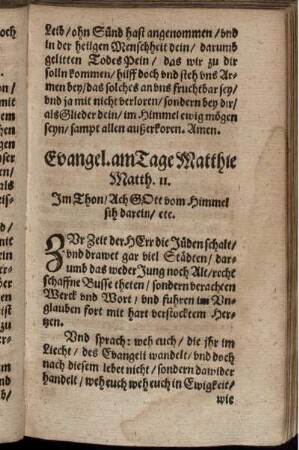 Leib/ ohn Sünd hast angenommen/ vnd
in der heilgen Menschheit dein/ darumb
gelitten Todes Pein/ das wir zu dir
solln kommen/ hilff doch vnd steh vns Ar-
men bey/ das solches an vns fruchtbar sey/
vnd ja mit nicht verloren/ sondern bey dir/
als Glieder dein/ im Himmel ewig mögen
seyn/ sampt allen außerkoren. Amen.
Evangel. am Tage Matthie
Matth. 11.
Im Thon/ Ach GOtt vom Himmel
sih darein/ etc.
ZVr Zeit der HErr die Jüden schalt/
vnd drawet gar viel Städten/ dar-
umb das weder Jung noch Alt/ recht
schaffne Busse theten/ sondern verachten
Werck vnd Wort/ vnd fuhren im Vn-
glauben fort mit hart verstocktem Her-
tzen.
Vnd sprach: weh euch/ die jhr im
Liecht/ des Evangeli wandelt/ vnd doch
nach diesem lebet nicht/ sondern dawider
handelt/ weh euch weh euch in Ewigkeit/
wie